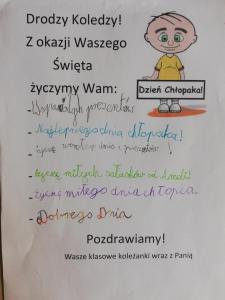 Drodzy Koledzy!
Z okazji Waszego
Święta
życzymy Wam:
Dzień Chłopaka!
- Wspaniałych prezentów
- Najlepszego dnia chłopaka!
- życzę dnia i prezentów!
- życzę miłych całusków od Amelii
- życzę miłego dnia chłopca
- Dobrego Dnia
Pozdrawiamy!
Wasze klasowe koleżanki wraz z Panią